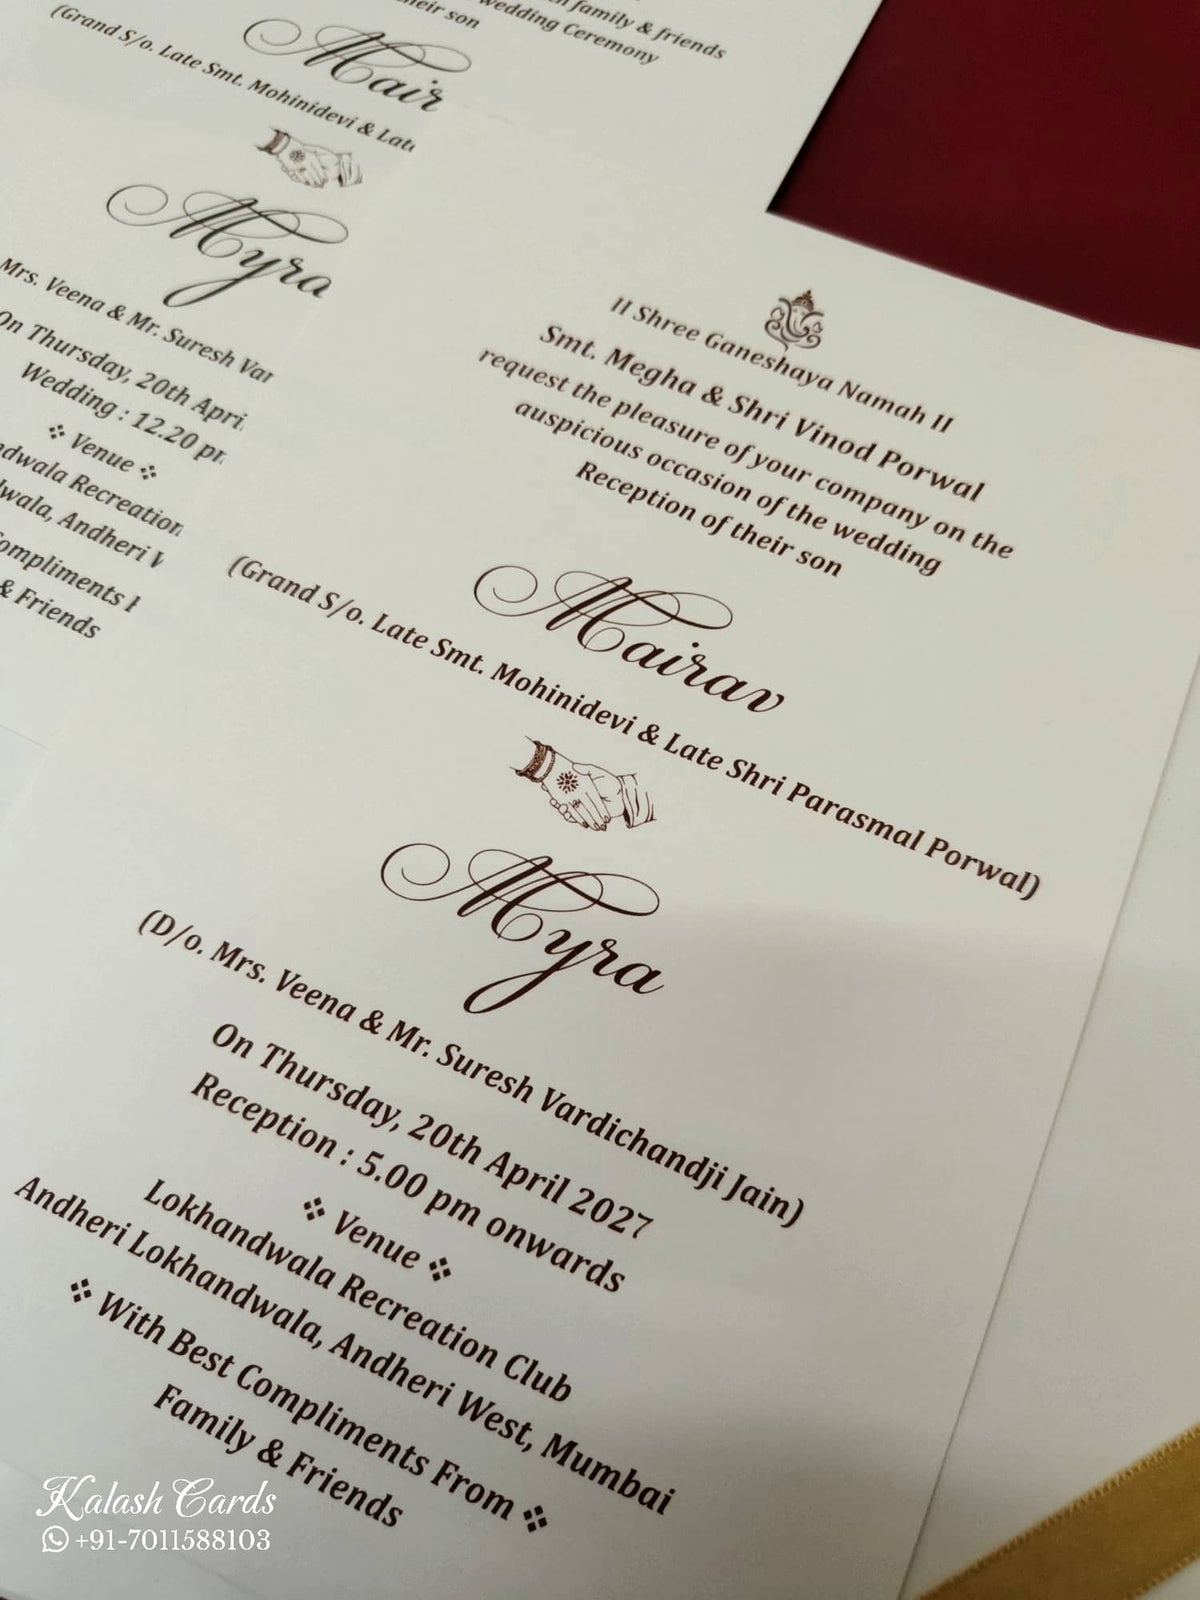 family & friends
wedding Ceremony
their son
Mair
(Grand S/o. Late Smt. Mohinidevi & Late
Myra
Mrs. Veena & Mr. Suresh Var
On Thursday, 20th Apri
Wedding : 12.20 pm
❖ Venue ❖
ndwala Recreation
dwala, Andheri W
ompliments F
& Friends
II Shree Ganeshaya Namah II
Smt. Megha & Shri Vinod Porwal
request the pleasure of your company on the
auspicious occasion of the wedding
Reception of their son
Mairav
(Grand S/o. Late Smt. Mohinidevi & Late Shri Parasmal Porwal)
Myra
(D/o. Mrs. Veena & Mr. Suresh Vardichandji Jain)
On Thursday, 20th April 2027
Reception : 5.00 pm onwards
❖ Venue ❖
Lokhandwala Recreation Club
Andheri Lokhandwala, Andheri West, Mumbai
❖ With Best Compliments From ❖
Family & Friends
Kalash Cards
+91-7011588103